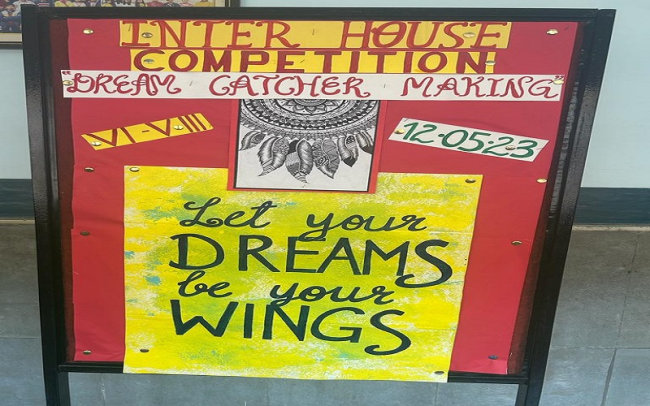 INTER HOUSE
COMPETITION
"DREAM CATCHER MAKING"
VI-VIII
12.05.23
Let your
DREAMS
be your
WINGS